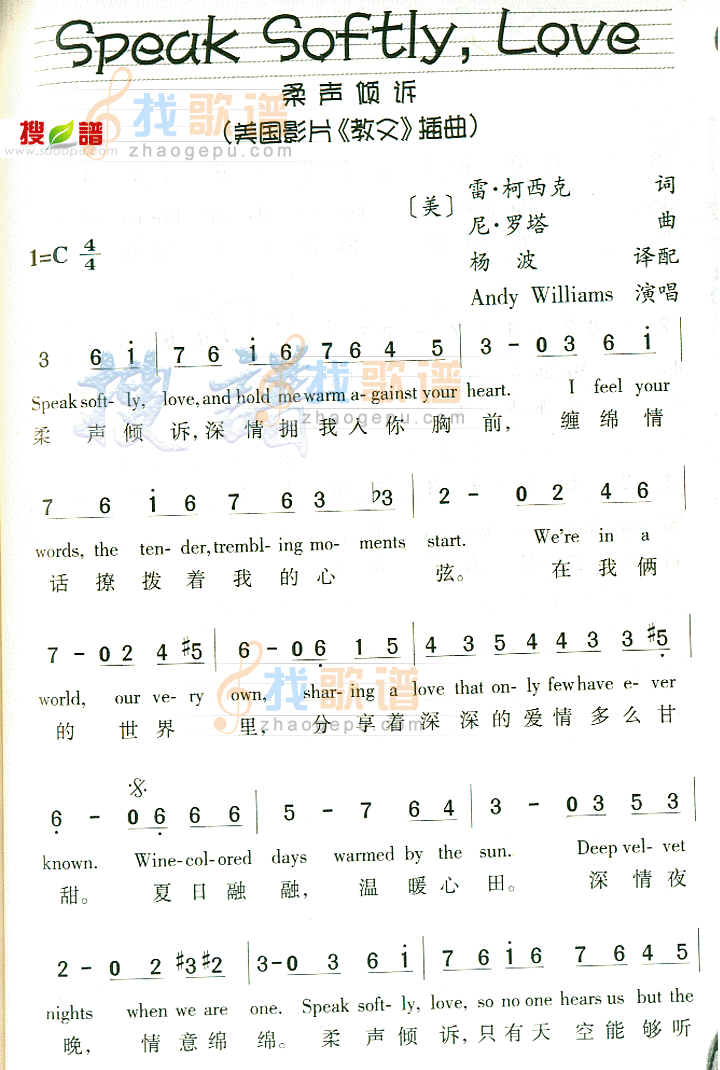 Speak Softly, Love
柔声倾诉
(美国影片《教父》插曲)
找歌谱
zhaogepu.com
搜谱
www.sooopu.com
〔美〕雷·柯西克 词
尼·罗塔 曲
杨 波 译配
Andy Williams 演唱
1=C 4/4
3 6 i | 7 6 i 6 7 6 4 5 | 3 - 0 3 6 i |
Speak soft- ly, love, and hold me warm a- gainst your heart. I feel your
柔 声 倾 诉, 深 情 拥 我 入 你 胸 前, 缠 绵 情
7 6 i 6 7 6 3 ♭3 | 2 - 0 2 4 6 |
words, the ten- der, trembl- ing mo- ments start. We're in a
话 撩 拨 着 我 的 心 弦。 在 我 俩
7 - 0 2 4 #5 | 6 - 0 6 1 5 | 4 3 5 4 4 3 3 #5 |
world, our ve- ry own, shar- ing a love that on- ly few have e- ver
的 世 界 里, 分 享 着 深 深 的 爱 情 多 么 甘
6 - 0 6 6 6 | 5 - 7 6 4 | 3 - 0 3 5 3 |
known. Wine-col-ored days warmed by the sun. Deep vel- vet
甜。 夏 日 融 融, 温 暖 心 田。 深 情 夜
2 - 0 2 #3 #2 | 3 - 0 3 6 i | 7 6 i 6 7 6 4 5 |
nights when we are one. Speak soft- ly, love, so no one hears us but the
晚, 情 意 绵 绵。 柔 声 倾 诉, 只 有 天 空 能 够 听